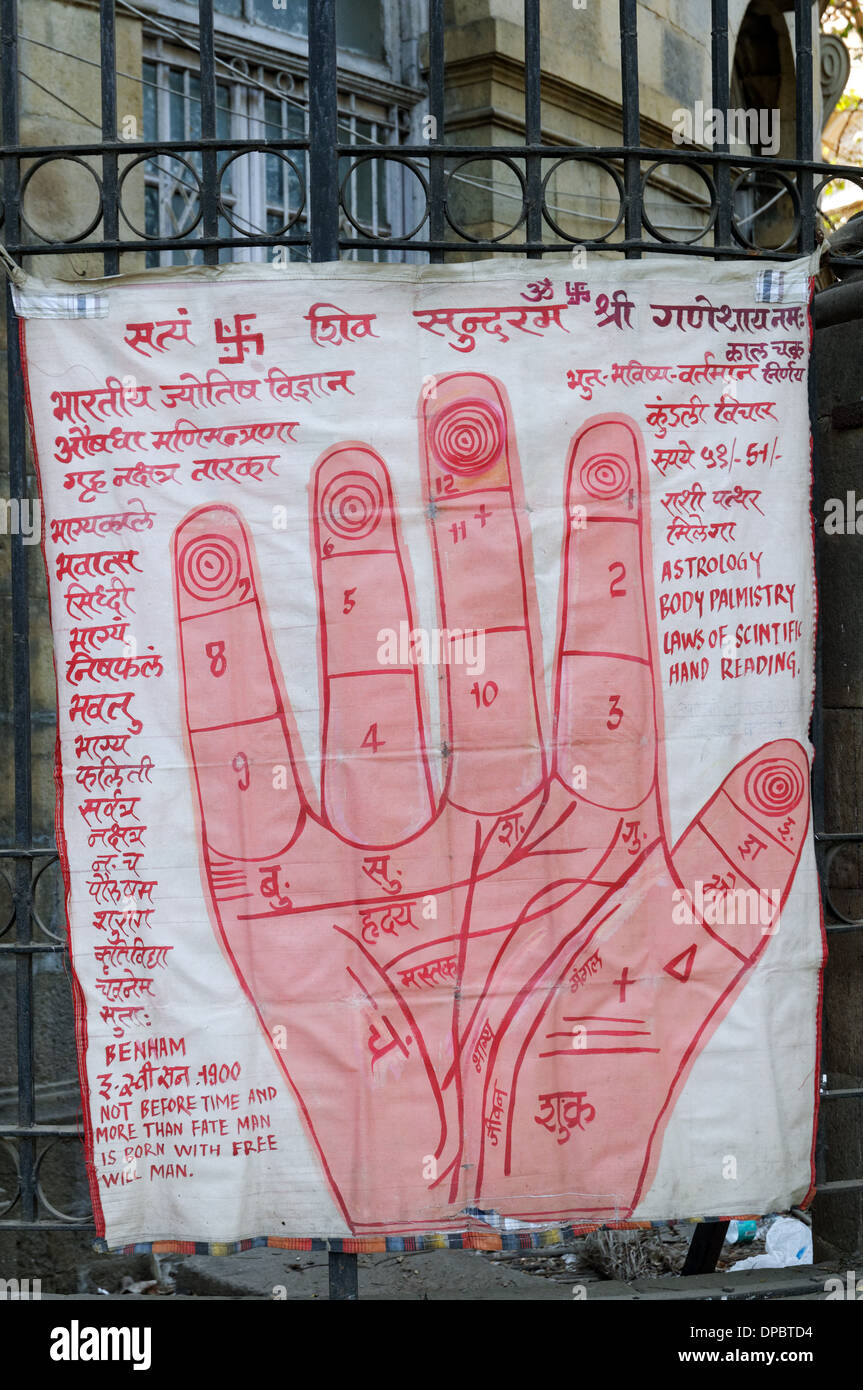 सत्यं 卐 शिव सुन्दरम ॐ 卐 श्री गणेशाय नमः
काल चक्र
भुत-भविष्य-वर्तमान निर्णय
भारतीय ज्योतिष विज्ञान
औषधा मणिमन्त्रणा
गृह नक्षत्र तारका
कुंडली विचार
रुपये ५१/-51/-
राशी पत्थर
मिलेगा
ASTROLOGY
BODY PALMISTRY
LAWS OF SCINTIFIC
HAND READING.
भाग्यकाले
भवात्स
सिध्दी
भाग्यं
निषफलं
भवतु
भाग्य
फलिती
सर्वत्र
नक्षत्र
न. च
पौरुषम
BENHAM
इ. स्वी सन. 1900
NOT BEFORE TIME AND
MORE THAN FATE MAN
IS BORN WITH FREE
WILL MAN.
7
8
9
6
5
4
12
11 +
10
1
2
3
बु.
सु.
श.
गु.
हृदय
मस्तक
मंगल
चं.
भाग्य
जीवन
शुक्र
alamy
Image ID: DPBTD4
www.alamy.com